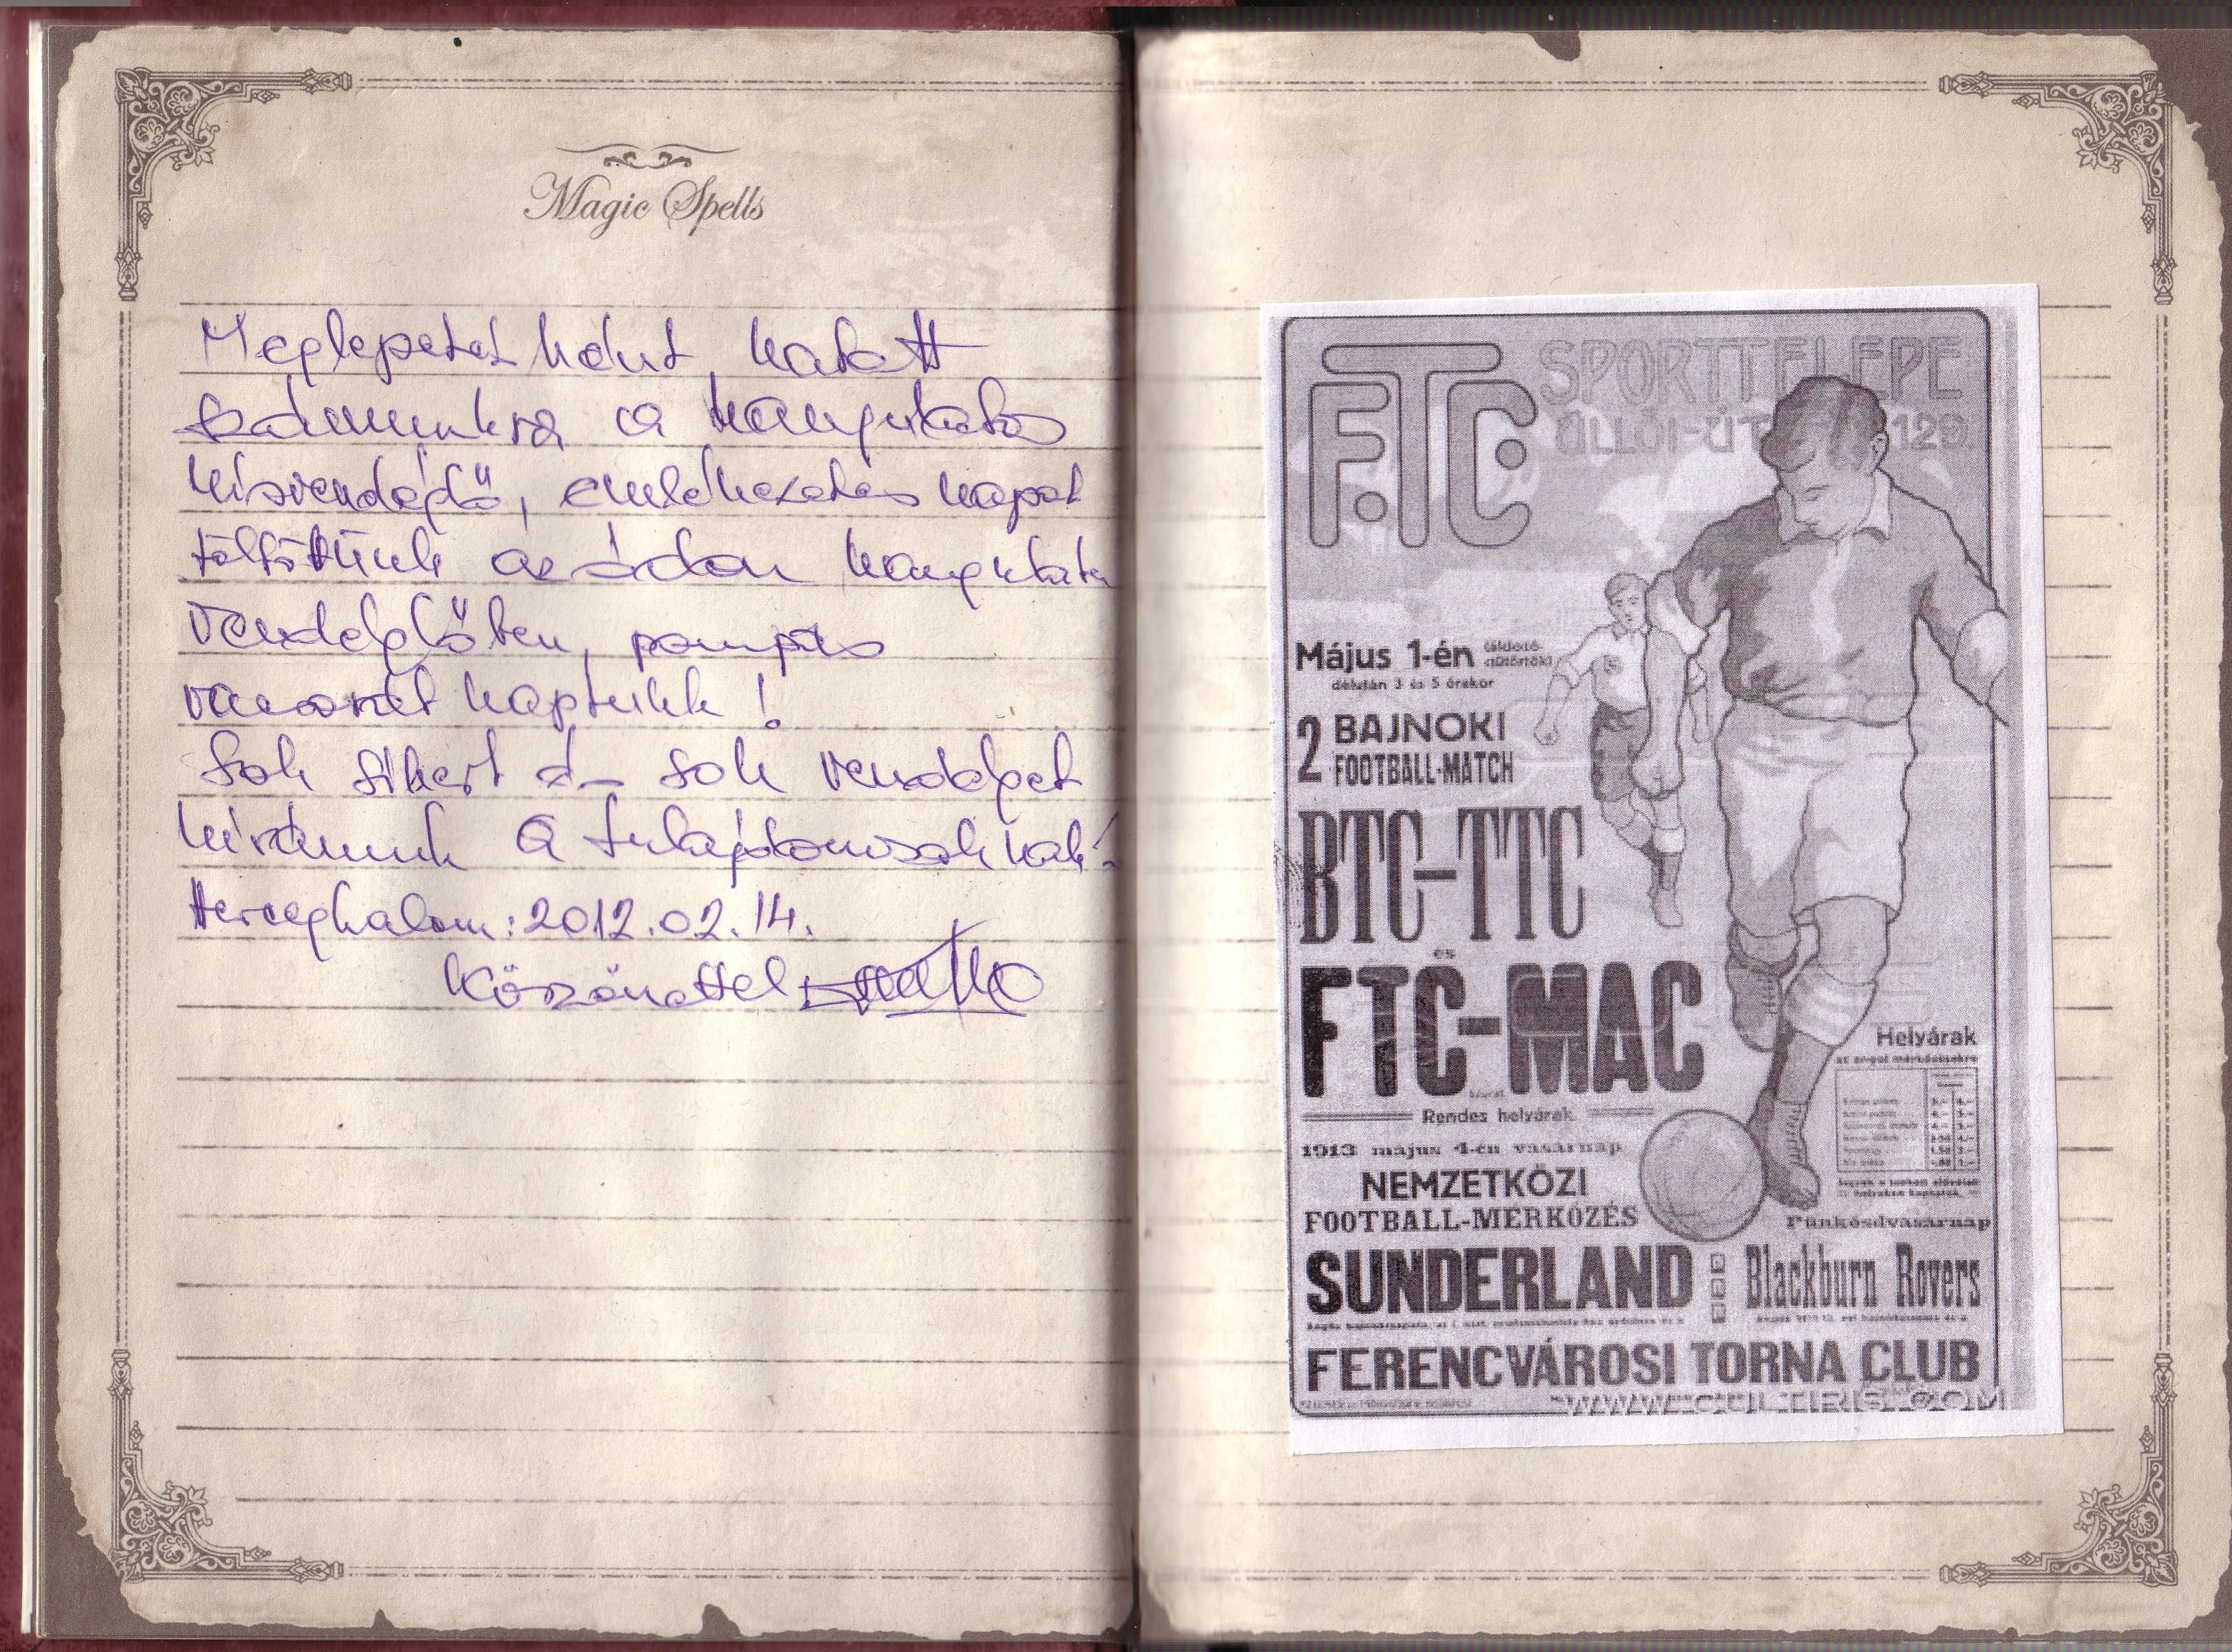 Magic Spells
Meglepetés ként hatott
számunkra a hangulatos
kisvendéglő, emlékezetes napot
töltöttünk az ódon hangulatú
vendéglőben, pompás
vacsorát kaptunk!
Sok sikert és sok vendéget
kívánunk a tulajdonosoknak!
Herceghalom: 2012.02.14.
Köszönettel
FTC SPORTTELEPE
ÜLLŐI-ÚT 129.
Május 1-én
délután 3 és 5 órakor
2 BAJNOKI
FOOTBALL-MATCH
BTC-TTC
és
FTC-MAC
Rendes helyárak
1913 május 4-én vasárnap
NEMZETKÖZI
FOOTBALL-MERKŐZÉS
SUNDERLAND
Helyárak
Pünkösdvasárnap
Blackburn Rovers
FERENCVÁROSI TORNA CLUB